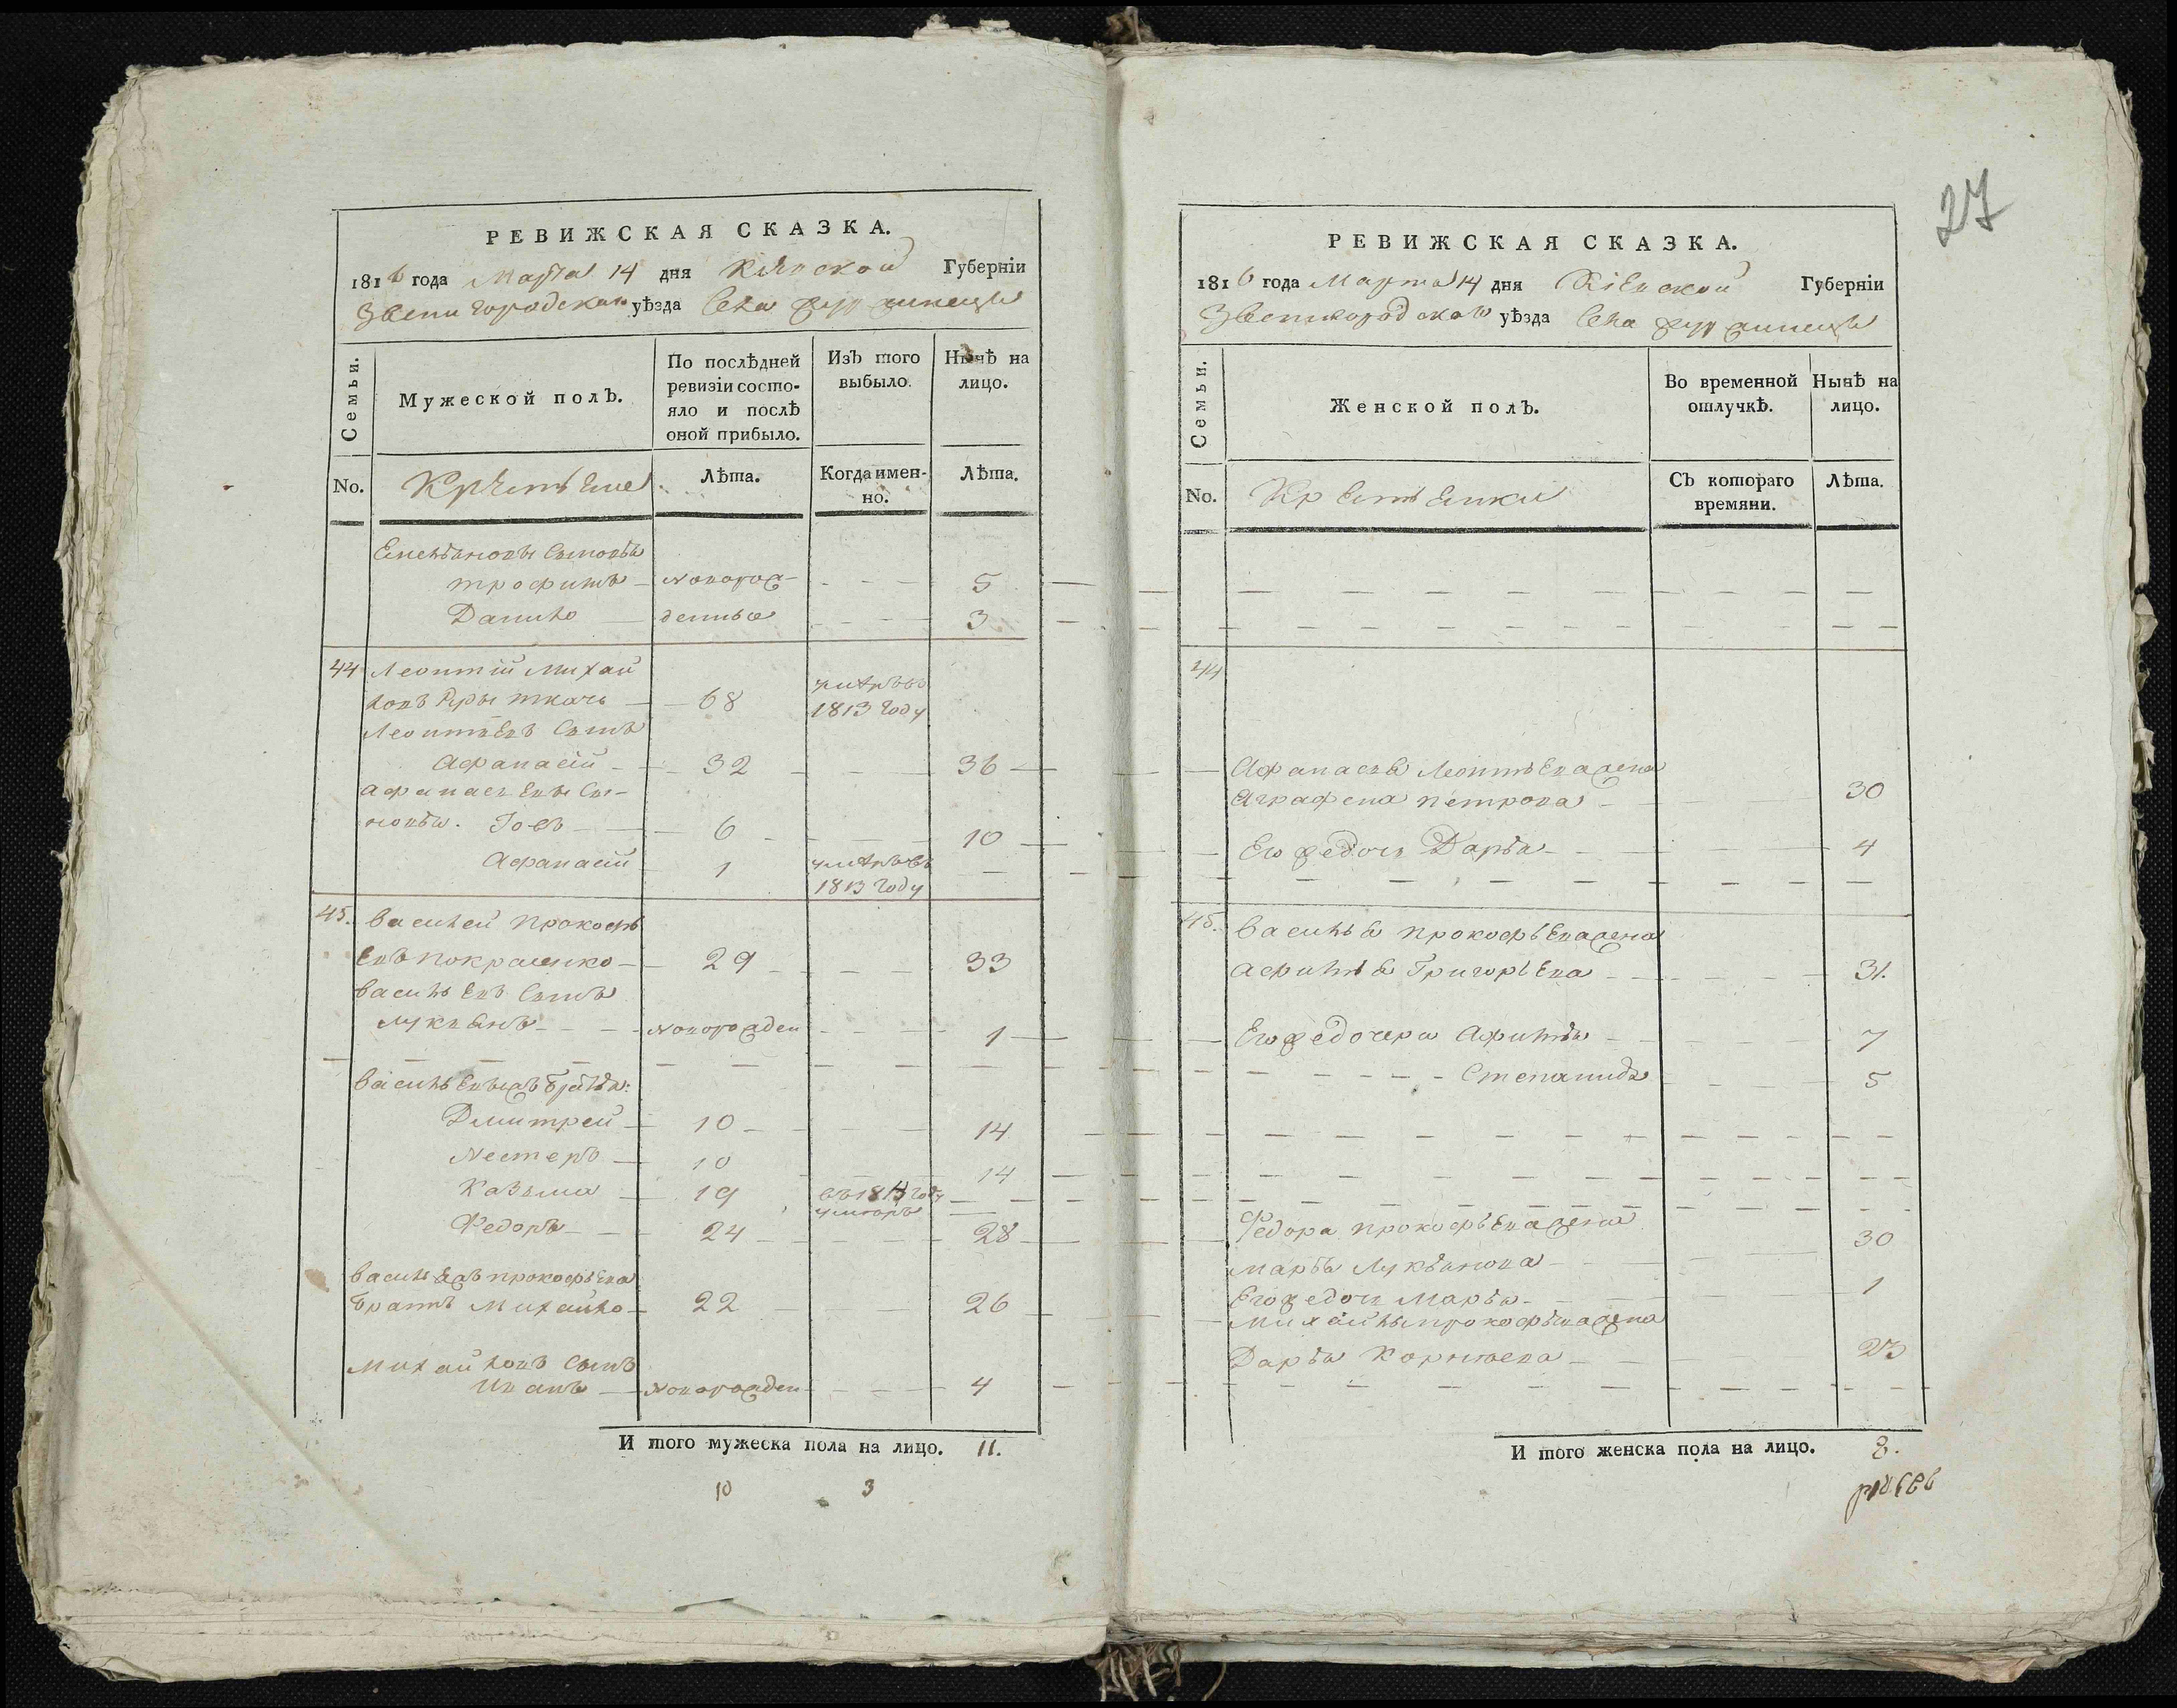 РЕВИЖСКАЯ СКАЗКА.
1816 года Марта 14 дня Киевской Губерніи
Звенигородскаго уѣзда Села
Семьи.
Мужеской полъ.
По послѣдней ревизіи состояло и послѣ оной прибыло.
Изъ того выбыло.
Нынѣ на лицо.
No.
Крестьяне
Лѣта.
Когда именно.
Лѣта.
Емельяновы сыновья
Трофимъ новорож- 5
Данило денные 3
44 Леонтій Михай
ловъ ткачь 68 умре въ 1813 году
Леонтьевъ сынъ
Афанасій 32 36
Афанасьевы сы-
новья. Іовъ 6 10
Афанасій 1 умре въ 1813 году
45. Василей Прокофь
евъ Покрашко 29 33
Васильевъ сынъ
Лукьянъ новорожден 1
Васильевы братья:
Дмитрей 10 14
Нестеръ 10 14
Казьма 19 въ 1813 году умеръ
Федоръ 24 28
Василья Прокофьева
братъ Михайло 22 26
Михайловъ сынъ
Иванъ новорожден 4
И того мужеска пола на лицо. 11.
10 3
27
РЕВИЖСКАЯ СКАЗКА.
1816 года Марта 14 дня Кіевской Губерніи
Звенигородскаго уѣзда Села
Семьи.
Женской полъ.
Во временной отлучкѣ.
Нынѣ на лицо.
No.
Крестьянки
Съ котораго времяни.
Лѣта.
44
Афанасья Леонтьева жена
Аграфена Петрова 30
Его же дочь Дарья 4
45. Василья Прокофьева жена
Афимья Григорьева 31.
Его же дочери Афимья 7
Степанида 5
Федора Прокофьева жена
Марья Лукьянова 30
Его же дочь Марья 1
Михайлы Прокофьева жена
Дарья Корнеева 23
И того женска пола на лицо. 8.